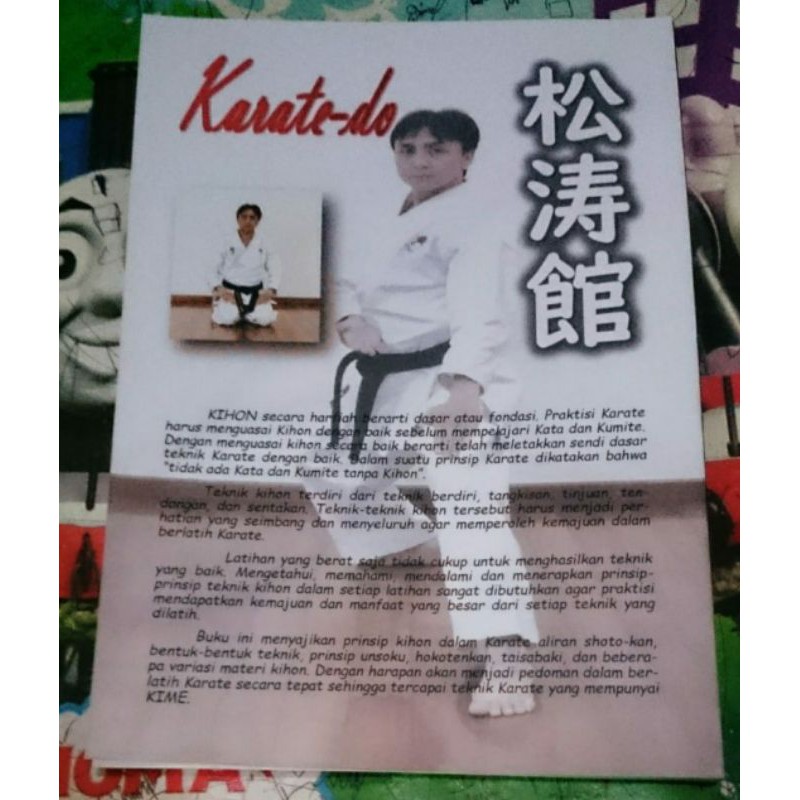 Karate-do
松
涛
館
KIHON secara harfiah berarti dasar atau fondasi. Praktisi Karate
harus menguasai Kihon dengan baik sebelum mempelajari Kata dan Kumite.
Dengan menguasai kihon secara baik berarti telah meletakkan sendi dasar
teknik Karate dengan baik. Dalam suatu prinsip Karate dikatakan bahwa
"tidak ada Kata dan Kumite tanpa Kihon".
Teknik kihon terdiri dari teknik berdiri, tangkisan, tinjuan, ten-
dangan, dan sentakan. Teknik-teknik kihon tersebut harus menjadi per-
hatian yang seimbang dan menyeluruh agar memperoleh kemajuan dalam
berlatih Karate.
Latihan yang berat saja tidak cukup untuk menghasilkan teknik
yang baik. Mengetahui, memahami, mendalami dan menerapkan prinsip-
prinsip teknik kihon dalam setiap latihan sangat dibutuhkan agar praktisi
mendapatkan kemajuan dan manfaat yang besar dari setiap teknik yang
dilatih.
Buku ini menyajikan prinsip kihon dalam Karate aliran shoto-kan,
bentuk-bentuk teknik, prinsip unsoku, hokotenkan, taisabaki, dan bebera-
pa variasi materi kihon. Dengan harapan akan menjadi pedoman dalam ber-
latih Karate secara tepat sehingga tercapai teknik Karate yang mempunyai
KIME.